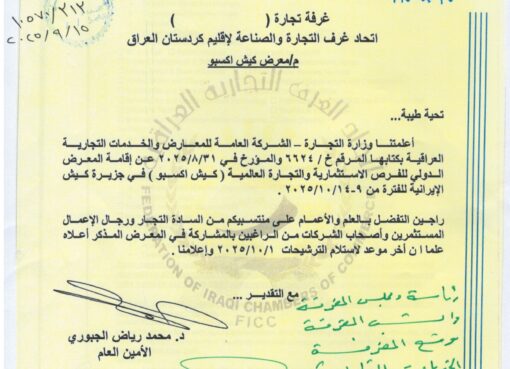 ١٠٥٧٠/٢١٢
٢٠٢٥/٩/١٥
غرفة تجارة ( )
اتحاد غرف التجارة والصناعة لإقليم كردستان العراق
م/معرض كيش اكسبو
تحية طيبة...
أعلمتنا وزارة التجارة – الشركة العامة للمعارض والخدمات التجارية
العراقية بكتابها المرقم خ / ٦٦٢٤ والمؤرخ في ٢٠٢٥/٨/٣١ عن إقامة المعرض
الدولي للفرص الاستثمارية والتجارة العالمية (كيش اكسبو) في جزيرة كيش
الإيرانية للفترة من ٩-٢٠٢٥/١٠/١٤.
راجين التفضل بالعلم والأعمام على منتسبيكم من السادة التجار ورجال الإعمال
المستثمرين وأصحاب الشركات من الراغبين بالمشاركة في المعرض المذكر أعلاه
علما ان أخر موعد لاستلام الترشيحات ٢٠٢٥/١٠/١ وإعلامنا.
مع التقدير...
د. محمد رياض الجبوري
الأمين العام
رئاسة ومجلس الغرفة
موقع الغرفة
FEDERATION OF IRAQI CHAMBERS OF COMMERCE
FICC